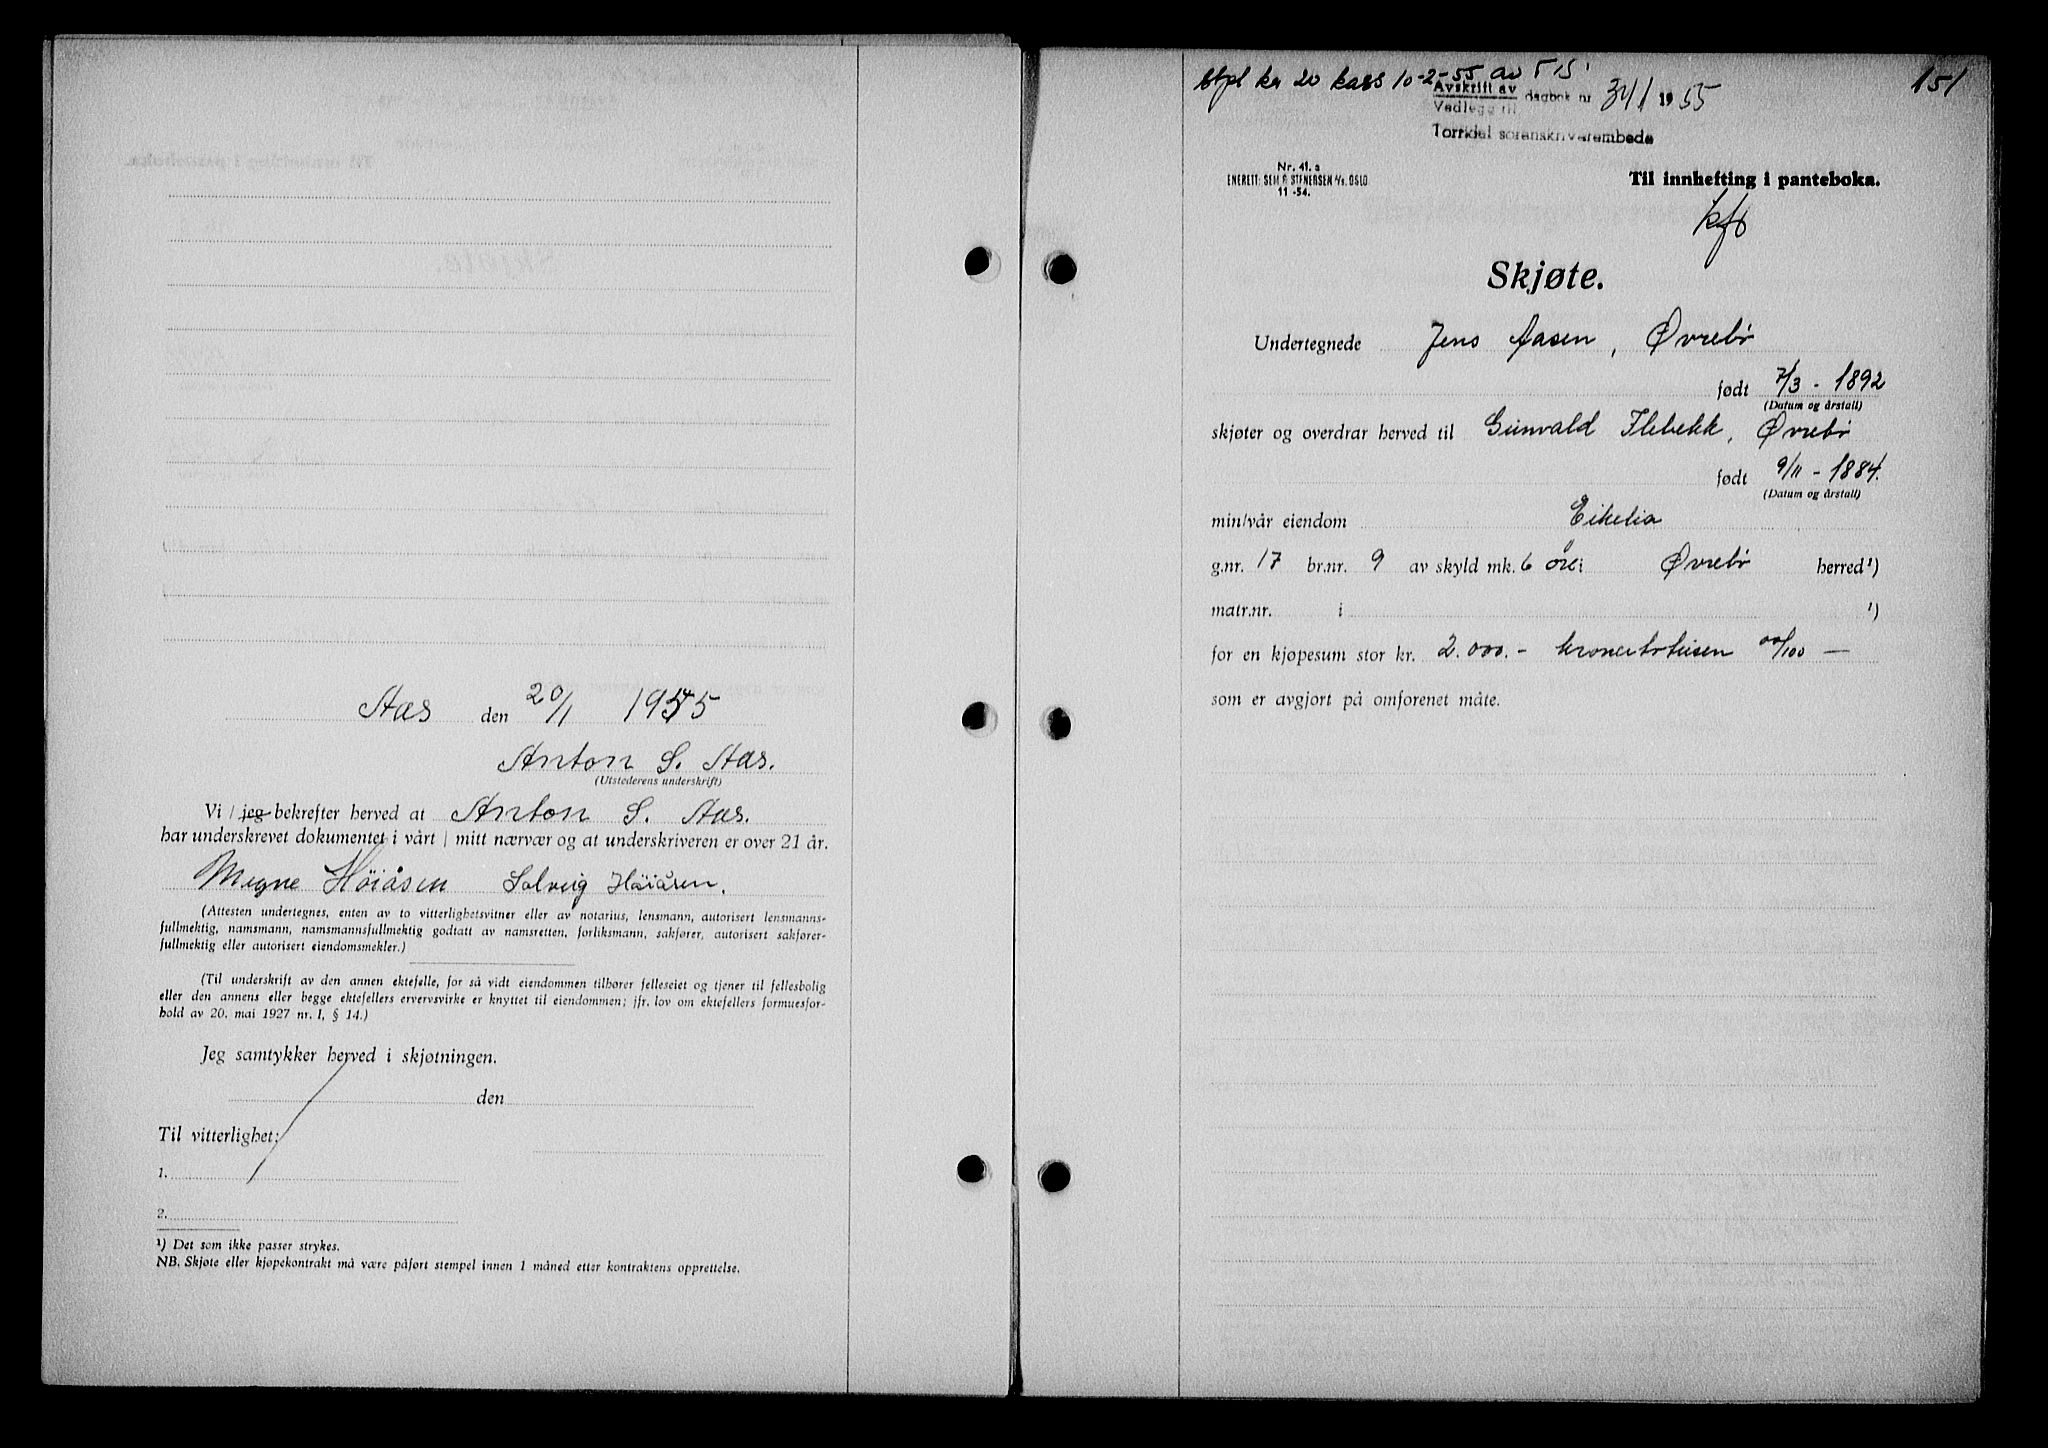 Aas den 20/1 1955
Anton S. Aas.
(Utstederens underskrift)
Vi / jeg bekrefter herved at Anton S. Aas.
har underskrevet dokumentet i vårt / mitt nærvær og at underskriveren er over 21 år.
Magne Høiåsen Solveig Høiåsen.
(Attesten undertegnes, enten av to vitterlighetsvitner eller av notarius, lensmann, autorisert lensmanns-
fullmektig, namsmann, namsmannsfullmektig godtatt av namsretten, forliksmann, sakfører, autorisert sakfører-
fullmektig eller autorisert eiendomsmekler.)
(Til underskrift av den annen ektefelle, for så vidt eiendommen tilhører felleseiet og tjener til fellesbolig
eller den annens eller begge ektefellers ervervsvirke er knyttet til eiendommen; jfr. lov om ektefellers formuesfor-
hold av 20. mai 1927 nr. 1, § 14.)
Jeg samtykker herved i skjøtningen.
den
Til vitterlighet:
1.
2.
¹) Det som ikke passer strykes.
NB. Skjøte eller kjøpekontrakt må være påført stempel innen 1 måned etter kontraktens opprettelse.
151
stpl kr 20 kass 10-2-55 av
Avskrift av
Vedlegg til dagbok nr 341 1955
Torridal sorenskriverembede
Nr. 41. a
ENERETT: SEM & STENERSEN A/S. OSLO
11 -54.
Til innhefting i panteboka.
kfb
Skjøte.
Undertegnede Jens Aasen, Øvrebø
født 7/3 - 1892
(Datum og årstall)
skjøter og overdrar herved til Gunvald Flebekk, Øvrebø
født 9/11 - 1884.
(Datum og årstall)
min/vår eiendom Eikelia
g.nr. 17 br.nr. 9 av skyld mk. 6 øre i Øvrebø herred¹)
matr.nr. i ¹)
for en kjøpesum stor kr. 2.000.- kronertotusen 00/100 —
som er avgjort på omforenet måte.